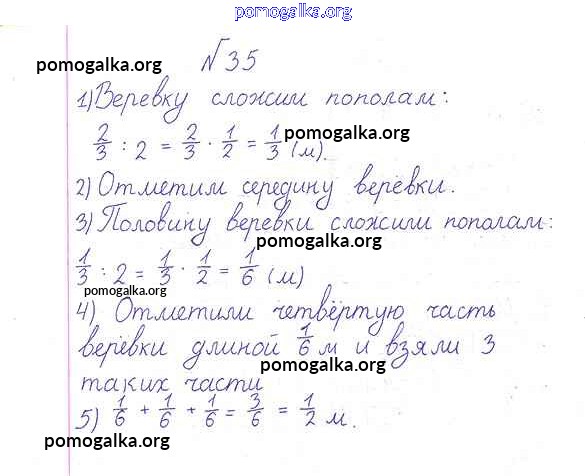 pomogalka.org
№ 35
pomogalka.org
1) Веревку сложим пополам:
2/3 : 2 = 2/3 · 1/2 = 1/3 (м).
pomogalka.org
2) Отметим середину веревки.
3) Половину веревки сложили пополам:
pomogalka.org
1/3 : 2 = 1/3 · 1/2 = 1/6 (м)
pomogalka.org
4) Отметили четвёртую часть
верёвки длиной 1/6 м и взяли 3
pomogalka.org
таких части
5) 1/6 + 1/6 + 1/6 = 3/6 = 1/2 м.
pomogalka.org